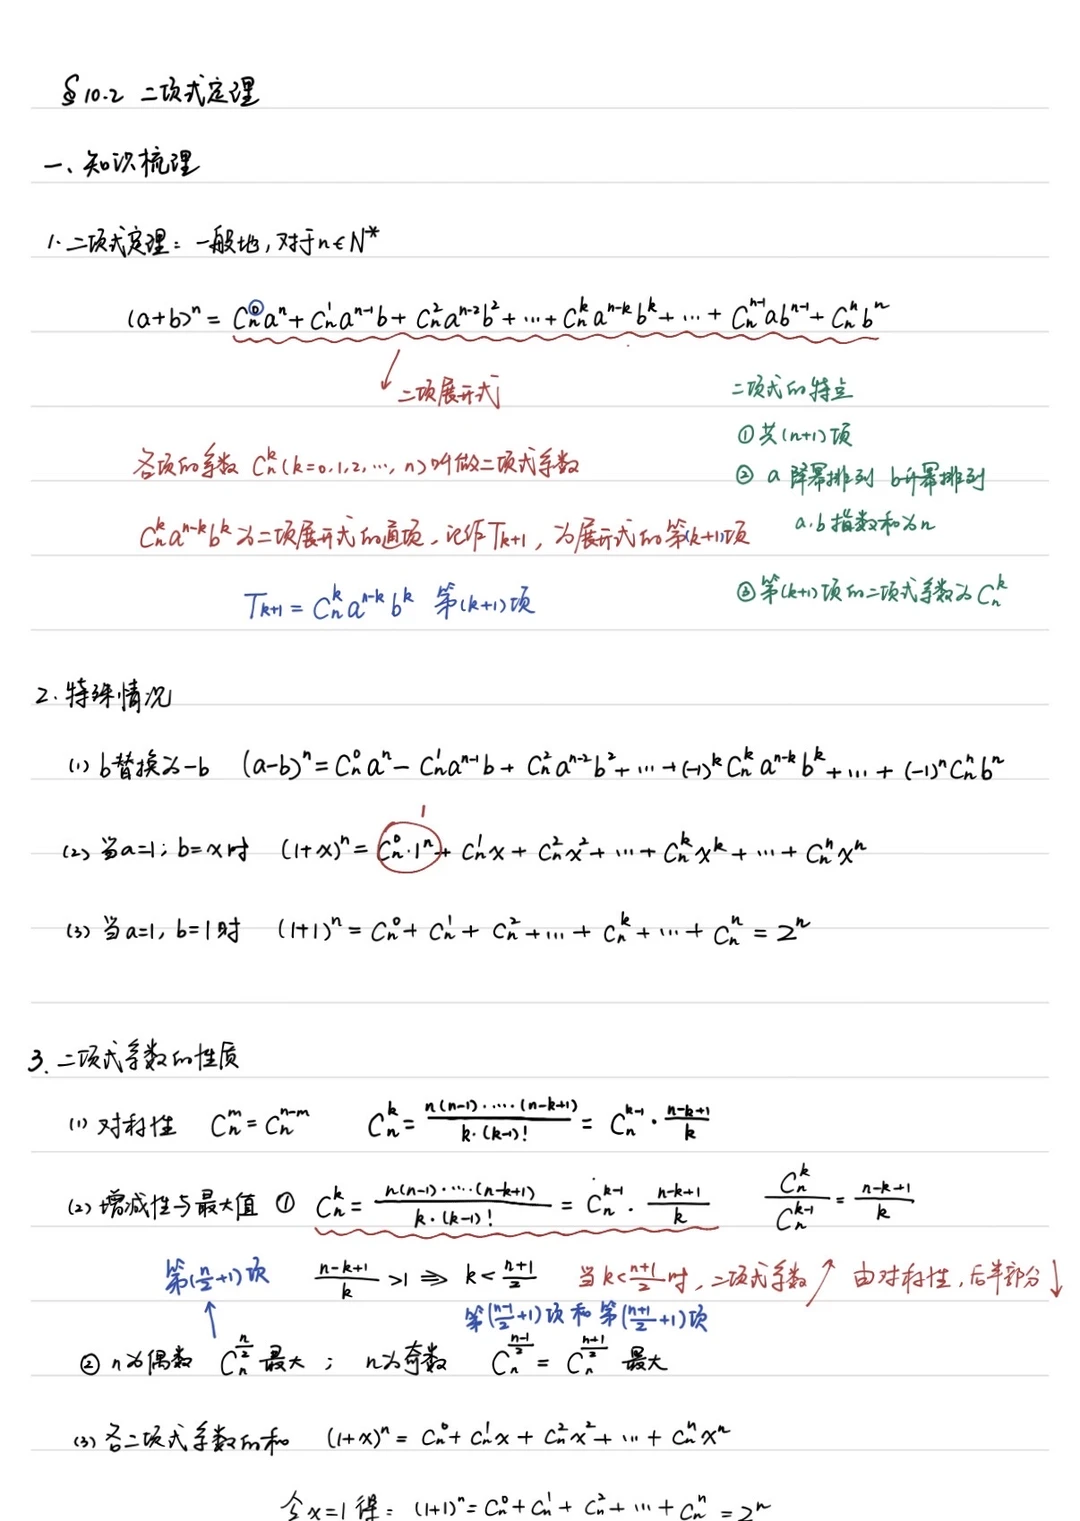 §10.2 二项式定理
一、知识梳理
1. 二项式定理：一般地，对于n∈N*
(a+b)ⁿ = Cₙ⁰aⁿ + Cₙ¹aⁿ⁻¹b + Cₙ²aⁿ⁻²b² + … + Cₙᵏaⁿ⁻ᵏbᵏ + … + Cₙⁿ⁻¹abⁿ⁻¹ + Cₙⁿbⁿ
二项展开式
二项式的特点
①共(n+1)项
各项的系数 Cₙᵏ(k=0,1,2,…,n)叫做二项式系数
② a降幂排列 b升幂排列
a.b指数和为n
Cₙᵏaⁿ⁻ᵏbᵏ为二项展开式的通项，记作Tₖ₊₁，为展开式的第(k+1)项
③第(k+1)项的二项式系数为Cₙᵏ
Tₖ₊₁ = Cₙᵏaⁿ⁻ᵏbᵏ 第(k+1)项
2. 特殊情况
(1) b替换为-b (a-b)ⁿ = Cₙ⁰aⁿ - Cₙ¹aⁿ⁻¹b + Cₙ²aⁿ⁻²b² + … + (-1)ᵏCₙᵏaⁿ⁻ᵏbᵏ + … + (-1)ⁿCₙⁿbⁿ
1
(2) 当a=1；b=x时 (1+x)ⁿ = Cₙ⁰·1ⁿ + Cₙ¹x + Cₙ²x² + … + Cₙᵏxᵏ + … + Cₙⁿxⁿ
(3) 当a=1, b=1时 (1+1)ⁿ = Cₙ⁰ + Cₙ¹ + Cₙ² + … + Cₙᵏ + … + Cₙⁿ = 2ⁿ
3. 二项式系数的性质
(1) 对称性 Cₙᵐ = Cₙⁿ⁻ᵐ Cₙᵏ = n(n-1)·…·(n-k+1)/k·(k-1)! = Cₙᵏ⁻¹ · (n-k+1)/k
(2) 增减性与最大值 ① Cₙᵏ = n(n-1)·…·(n-k+1)/k·(k-1)! = Cₙᵏ⁻¹ · (n-k+1)/k Cₙᵏ/Cₙᵏ⁻¹ = (n-k+1)/k
第(n/2+1)项 (n-k+1)/k >1 ⇒ k< (n+1)/2 当k<(n+1)/2时，二项式系数↗ 由对称性，后半部分↓
第((n-1)/2+1)项 和 第((n+1)/2+1)项
② n为偶数 Cₙ^(n/2) 最大； n为奇数 Cₙ^((n-1)/2) = Cₙ^((n+1)/2) 最大
(3) 各二项式系数的和 (1+x)ⁿ = Cₙ⁰ + Cₙ¹x + Cₙ²x² + … + Cₙⁿxⁿ
令x=1得：(1+1)ⁿ = Cₙ⁰ + Cₙ¹ + Cₙ² + … + Cₙⁿ = 2ⁿ